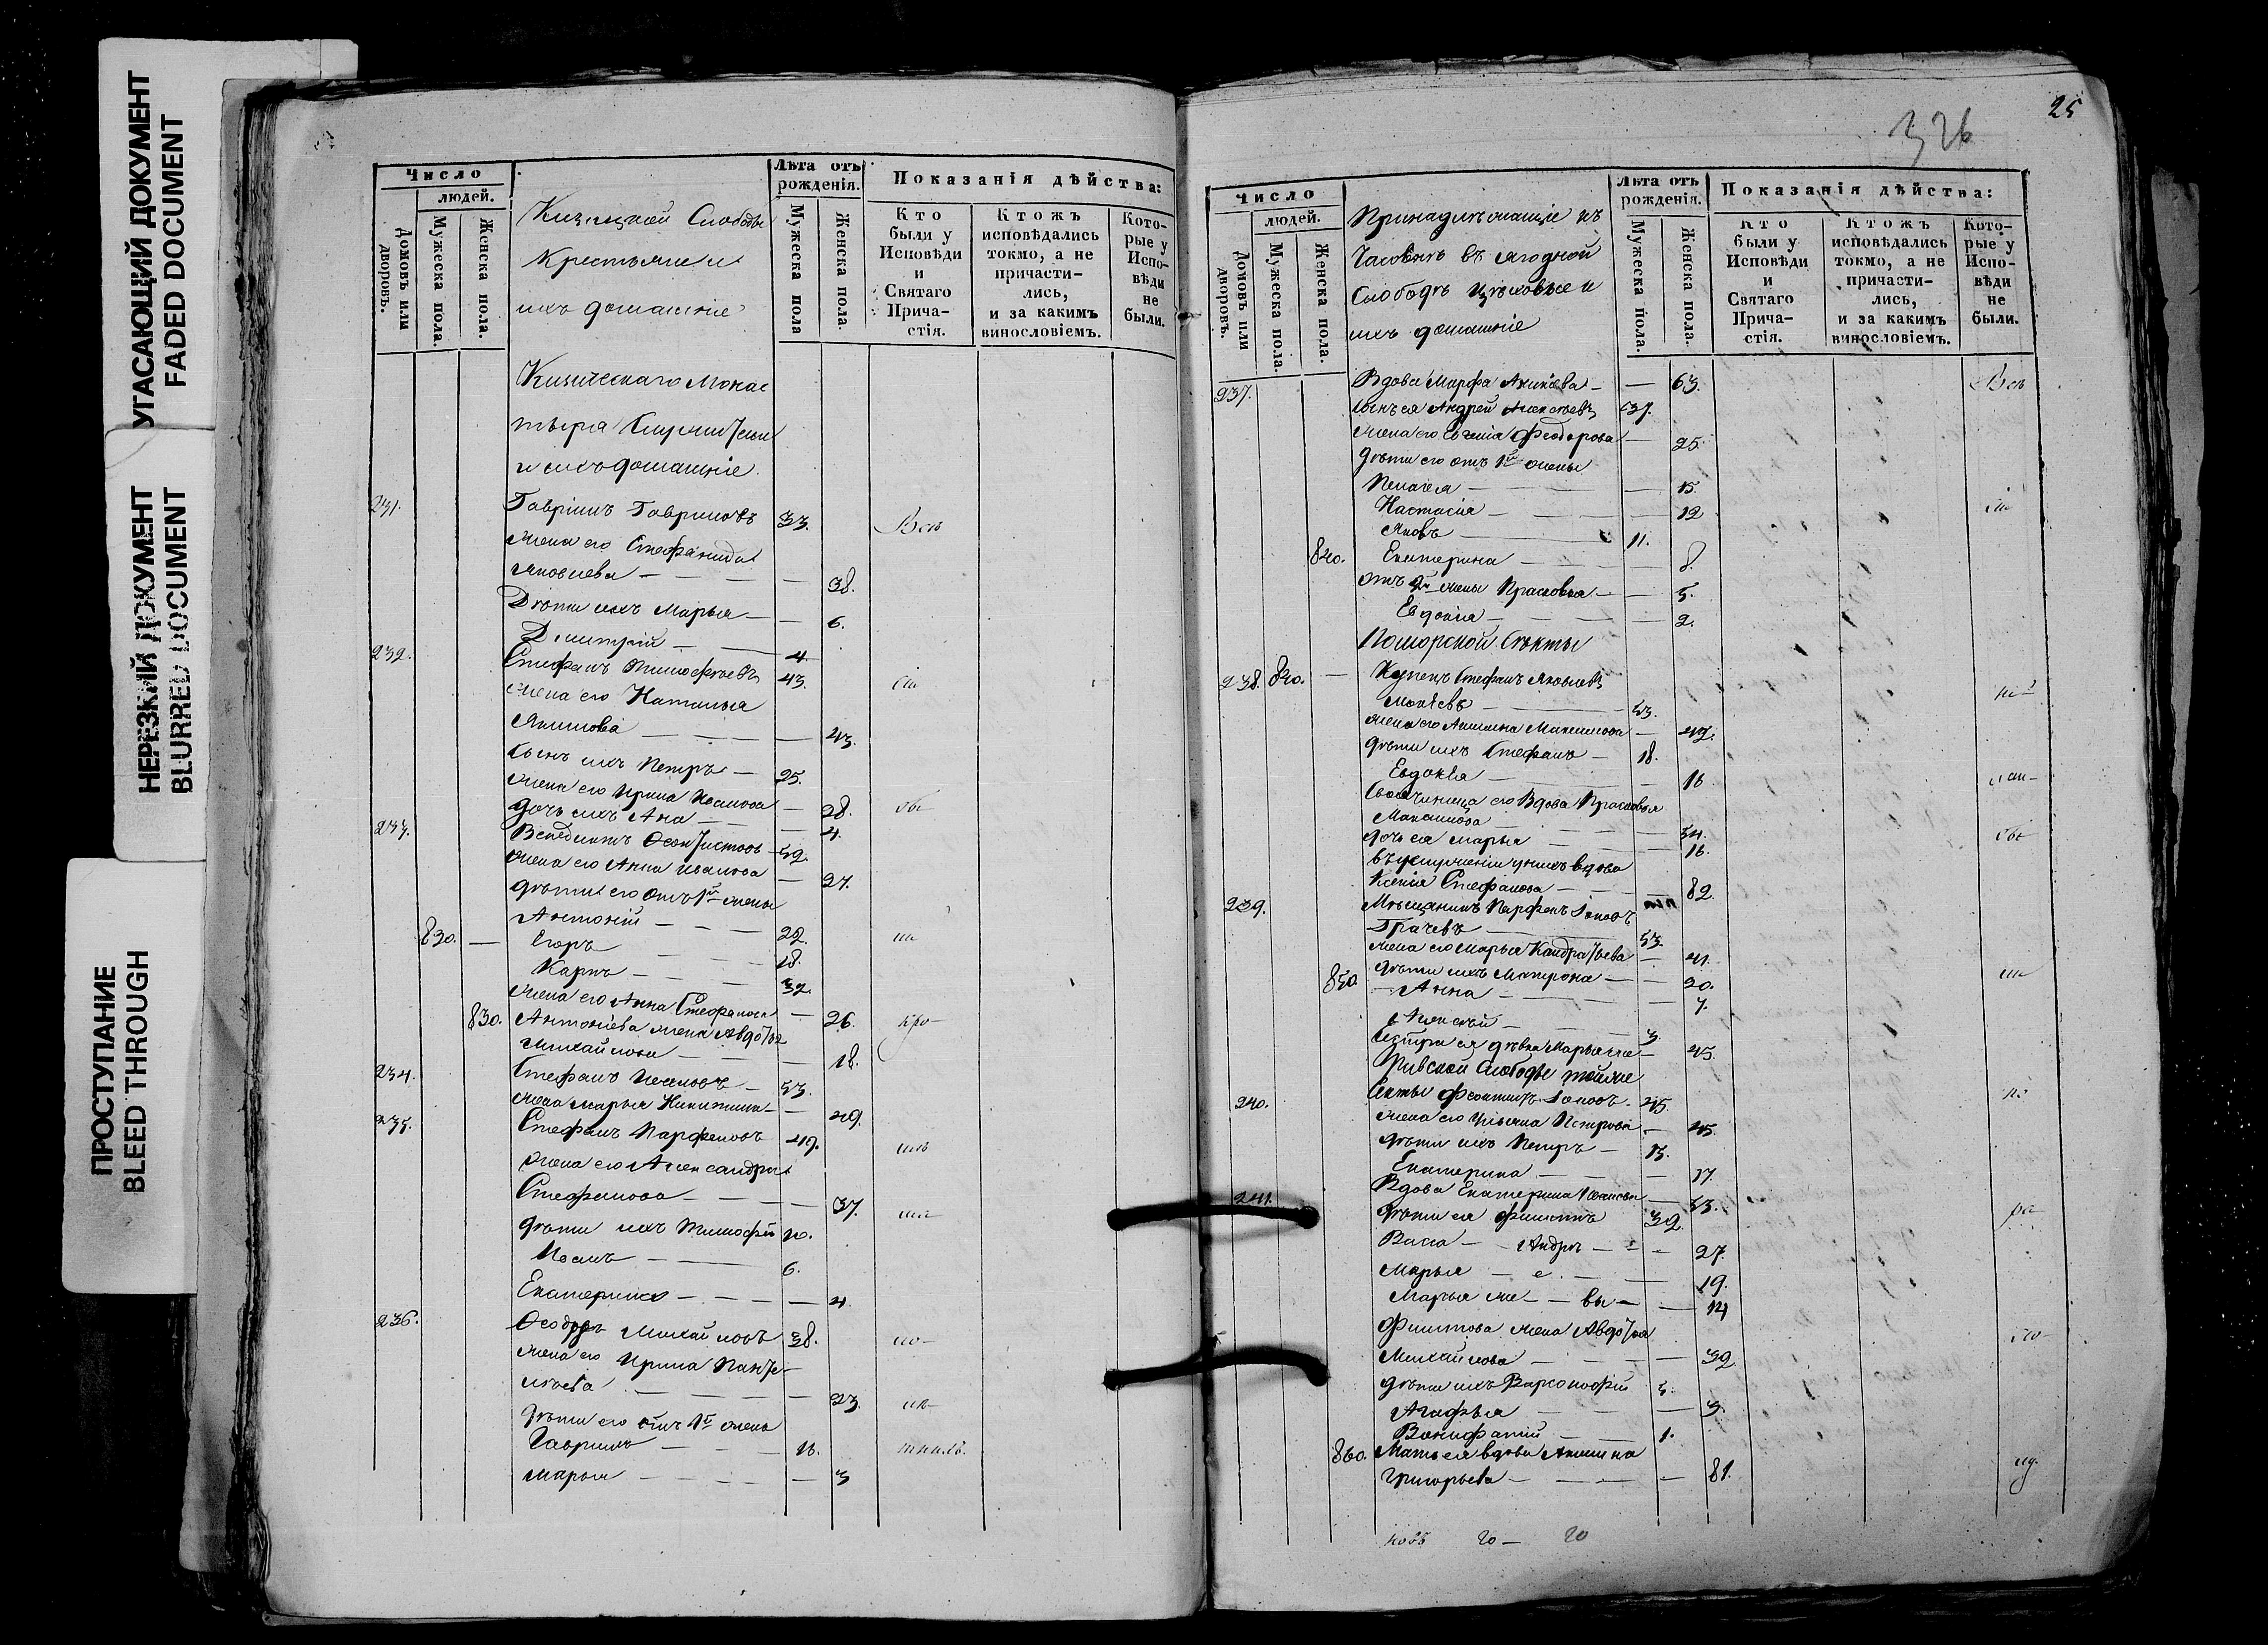 УГАСАЮЩИЙ ДОКУМЕНТ
FADED DOCUMENT
НЕРЕЗКИЙ ДОКУМЕНТ
BLURRED DOCUMENT
ПРОСТУПАНИЕ
BLEED THROUGH
Число
людей.
Домовъ или дворовъ.
Мужеска пола.
Женска пола.
Кизицкой Слободы
Крестьяне и
ихъ домашніе
Лѣта отъ рожденія.
Мужеска пола
Женска пола.
Показанія дѣйства:
Кто были у Исповѣди и Святаго Прича-стія.
Ктожъ исповѣдались токмо, а не причасти-лись, и за какимъ винословіемъ.
Кото-рые у Испо-вѣди не были.
Кизическаго Монас
тыря Служители
и ихъ домашніе.
231. Гавріилъ Гавриловъ 33. Всѣ
жена его Стефанида
Яковлева — — 38.
Дѣти ихъ Марья — — 6.
Дмитрій — — 4
232. Стефанъ Тимофеевъ 43.
жена его Наталья
Якимова — — — 43.
сынъ ихъ Петръ — 25.
жена его Ирина Иванова — 28.
дочь ихъ Ана — — 4.
233. Венедиктъ 52.
жена его Анна Иванова — 27.
дѣти его отъ 1й жены
Антоній — — — 22.
830. — Егоръ — — 18.
Карпъ — — — 32.
жена его Анна Стефанова — 26.
830. Антоніева жена Авдотья
Михайлова — — — 18.
234. Стефанъ — 53.
жена Марья Никитина — 49.
235. Стефанъ Парфеновъ 49.
жена его Александра
Стефанова — — — 37.
дѣти ихъ Тимофей 10.
— — 6.
Екатерина — — — 4.
236. Ѳеодоръ Михайловъ 38.
жена его Ирина Панте-
лѣева — — — 23.
дѣти его отъ 1й жены
Гаврилъ — — — 16.
Марья — — — 3
25
326
Число
людей.
Домовъ или дворовъ.
Мужеска пола.
Женска пола.
Принадлежащіе къ
Часовнѣ въ Ягодной
Слободѣ Цѣховые и
ихъ домашніе
Лѣта отъ рожденія.
Мужеска пола.
Женска пола.
Показанія дѣйства:
Кто были у Исповѣди и Святаго Прича-стія.
Ктожъ исповѣдались токмо, а не причасти-лись, и за какимъ винословіемъ.
Кото-рые у Испо-вѣди не были.
237. Вдова Марфа — — 63. Всѣ
сынъ ея Андрей Алексѣевъ 37.
жена его Евгенія Феодорова — 25.
дѣти его отъ 1й жены
Пелагея — — — 15.
Настасія — — — 12
Яковъ — — 11.
840. Екатерина — — — 8.
отъ 2й жены Прасковья — — 5.
Евдокія — — — 2.
Поморской Секты
238. 840. — Купецъ Стефанъ Яковлевъ
— — 53.
жена его Акилина Максимова — 47.
дѣти ихъ Стефанъ — 18.
Евдокія — — 16
Свояченица его Вдова Прасковья
Максимова — — — 54.
дочь ея Марья — — — 16.
вдова
Ксенія Стефанова — — 82.
239. Мѣщанинъ Парфенъ
Грачевъ — — 53.
жена его Марья Кандратьева — 41.
дѣти ихъ Матрона — — 20.
850 Анна — — — 7.
Алексѣй — — 3.
сестра ея дѣвка Марья — 45.
Слободы тойже
240. Секты 45.
жена его Петрова — 45.
дѣти ихъ Петръ — 15.
Екатерина — — — 17.
241. Вдова Екатерина — 53.
дѣти ея Филиппъ 32.
Васса — Андре — — 27.
Марья — е — — 19.
Марья — вы — — 14
Филиппова жена Авдотья
Михайлова — — — 32
дѣти ихъ Варсонофій 5.
Агафья — — — 3.
Вонифатій — — 1.
860. Мать ея вдова Акилина
Григорьева — — — 81.
20 — 20